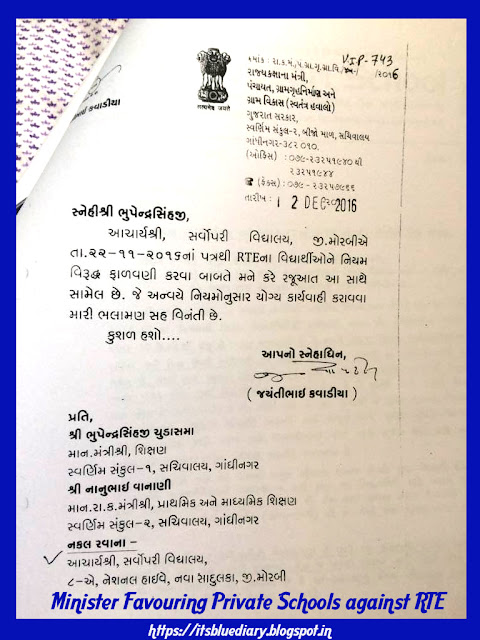 ભાઈ કવાડીયા
सत्यमेव जयते
ક્રમાંક : રા.ક.મ.,પ.ગ્રા.ગૃ.ગ્રા.વિ./ VIP-743
/૨૦૧6
રાજ્યકક્ષાના મંત્રી,
પંચાયત, ગ્રામગૃહનિર્માણ અને
ગ્રામ વિકાસ (સ્વતંત્ર હવાલો)
ગુજરાત સરકાર,
સ્વર્ણિમ સંકુલ-૨, બીજો માળ, સચિવાલય
ગાંધીનગર-૩૮૨ ૦૧૦.
(ઓફિસ) : ૦૭૯-૨૩૨૫૧૯૪૦ થી
૨૩૨૫૧૯૪૪
☎ (ફેક્સ) : ૦૭૯-૨૩૨૫૭૯૬૬
તારીખ : 12 DEC 2016
સ્નેહીશ્રી ભુપેન્દ્રસિંહજી,
આચાર્યશ્રી, સર્વોપરી વિદ્યાલય, જી.મોરબીએ
તા.૨૨-૧૧-૨૦૧૬નાં પત્રથી RTEના વિદ્યાર્થીઓને નિયમ
વિરૂદ્ધ ફાળવણી કરવા બાબતે મને કરે રજૂઆત આ સાથે
સામેલ છે. જે અન્વયે નિયમોનુસાર યોગ્ય કાર્યવાહી કરાવવા
મારી ભલામણ સહ વિનંતી છે.
કુશળ હશો....
આપનો સ્નેહાધિન,
( જયંતીભાઈ કવાડીયા )
પ્રતિ,
શ્રી ભુપેન્દ્રસિંહજી ચુડાસમા
માન.મંત્રીશ્રી, શિક્ષણ
સ્વર્ણિમ સંકુલ-૧, સચિવાલય, ગાંધીનગર
શ્રી નાનુભાઈ વાનાણી
માન.રા.ક.મંત્રીશ્રી, પ્રાથમિક અને માધ્યમિક શિક્ષણ
સ્વર્ણિમ સંકુલ-૨, સચિવાલય, ગાંધીનગર
નકલ રવાના -
આચાર્યશ્રી, સર્વોપરી વિદ્યાલય,
૮-એ, નેશનલ હાઈવે, નવા સાદુલકા, જી.મોરબી
Minister Favouring Private Schools against RTE
https://itsbluediary.blogspot.in